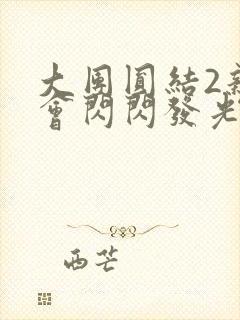 大團圓結2新
會閃閃發光
西芒